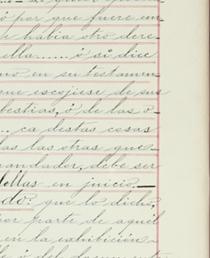 ó por que fuere en
había otro dere
ella...... ó si dice
no en su testamen
que escojiese de sus
bestias, ó de las o-
... ca destas cosas
las las otras que
mandador, debe ser
dellas en juicio.—
do: que lo dicho,
por parte de aquel
en la exhibición